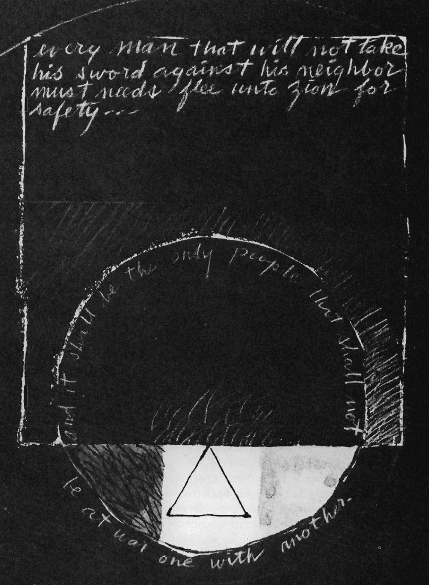 every man that will not take
his sword against his neighbor
must needs flee unto zion for
safety---
and it shall be the only people that shall not
be at war one with another.